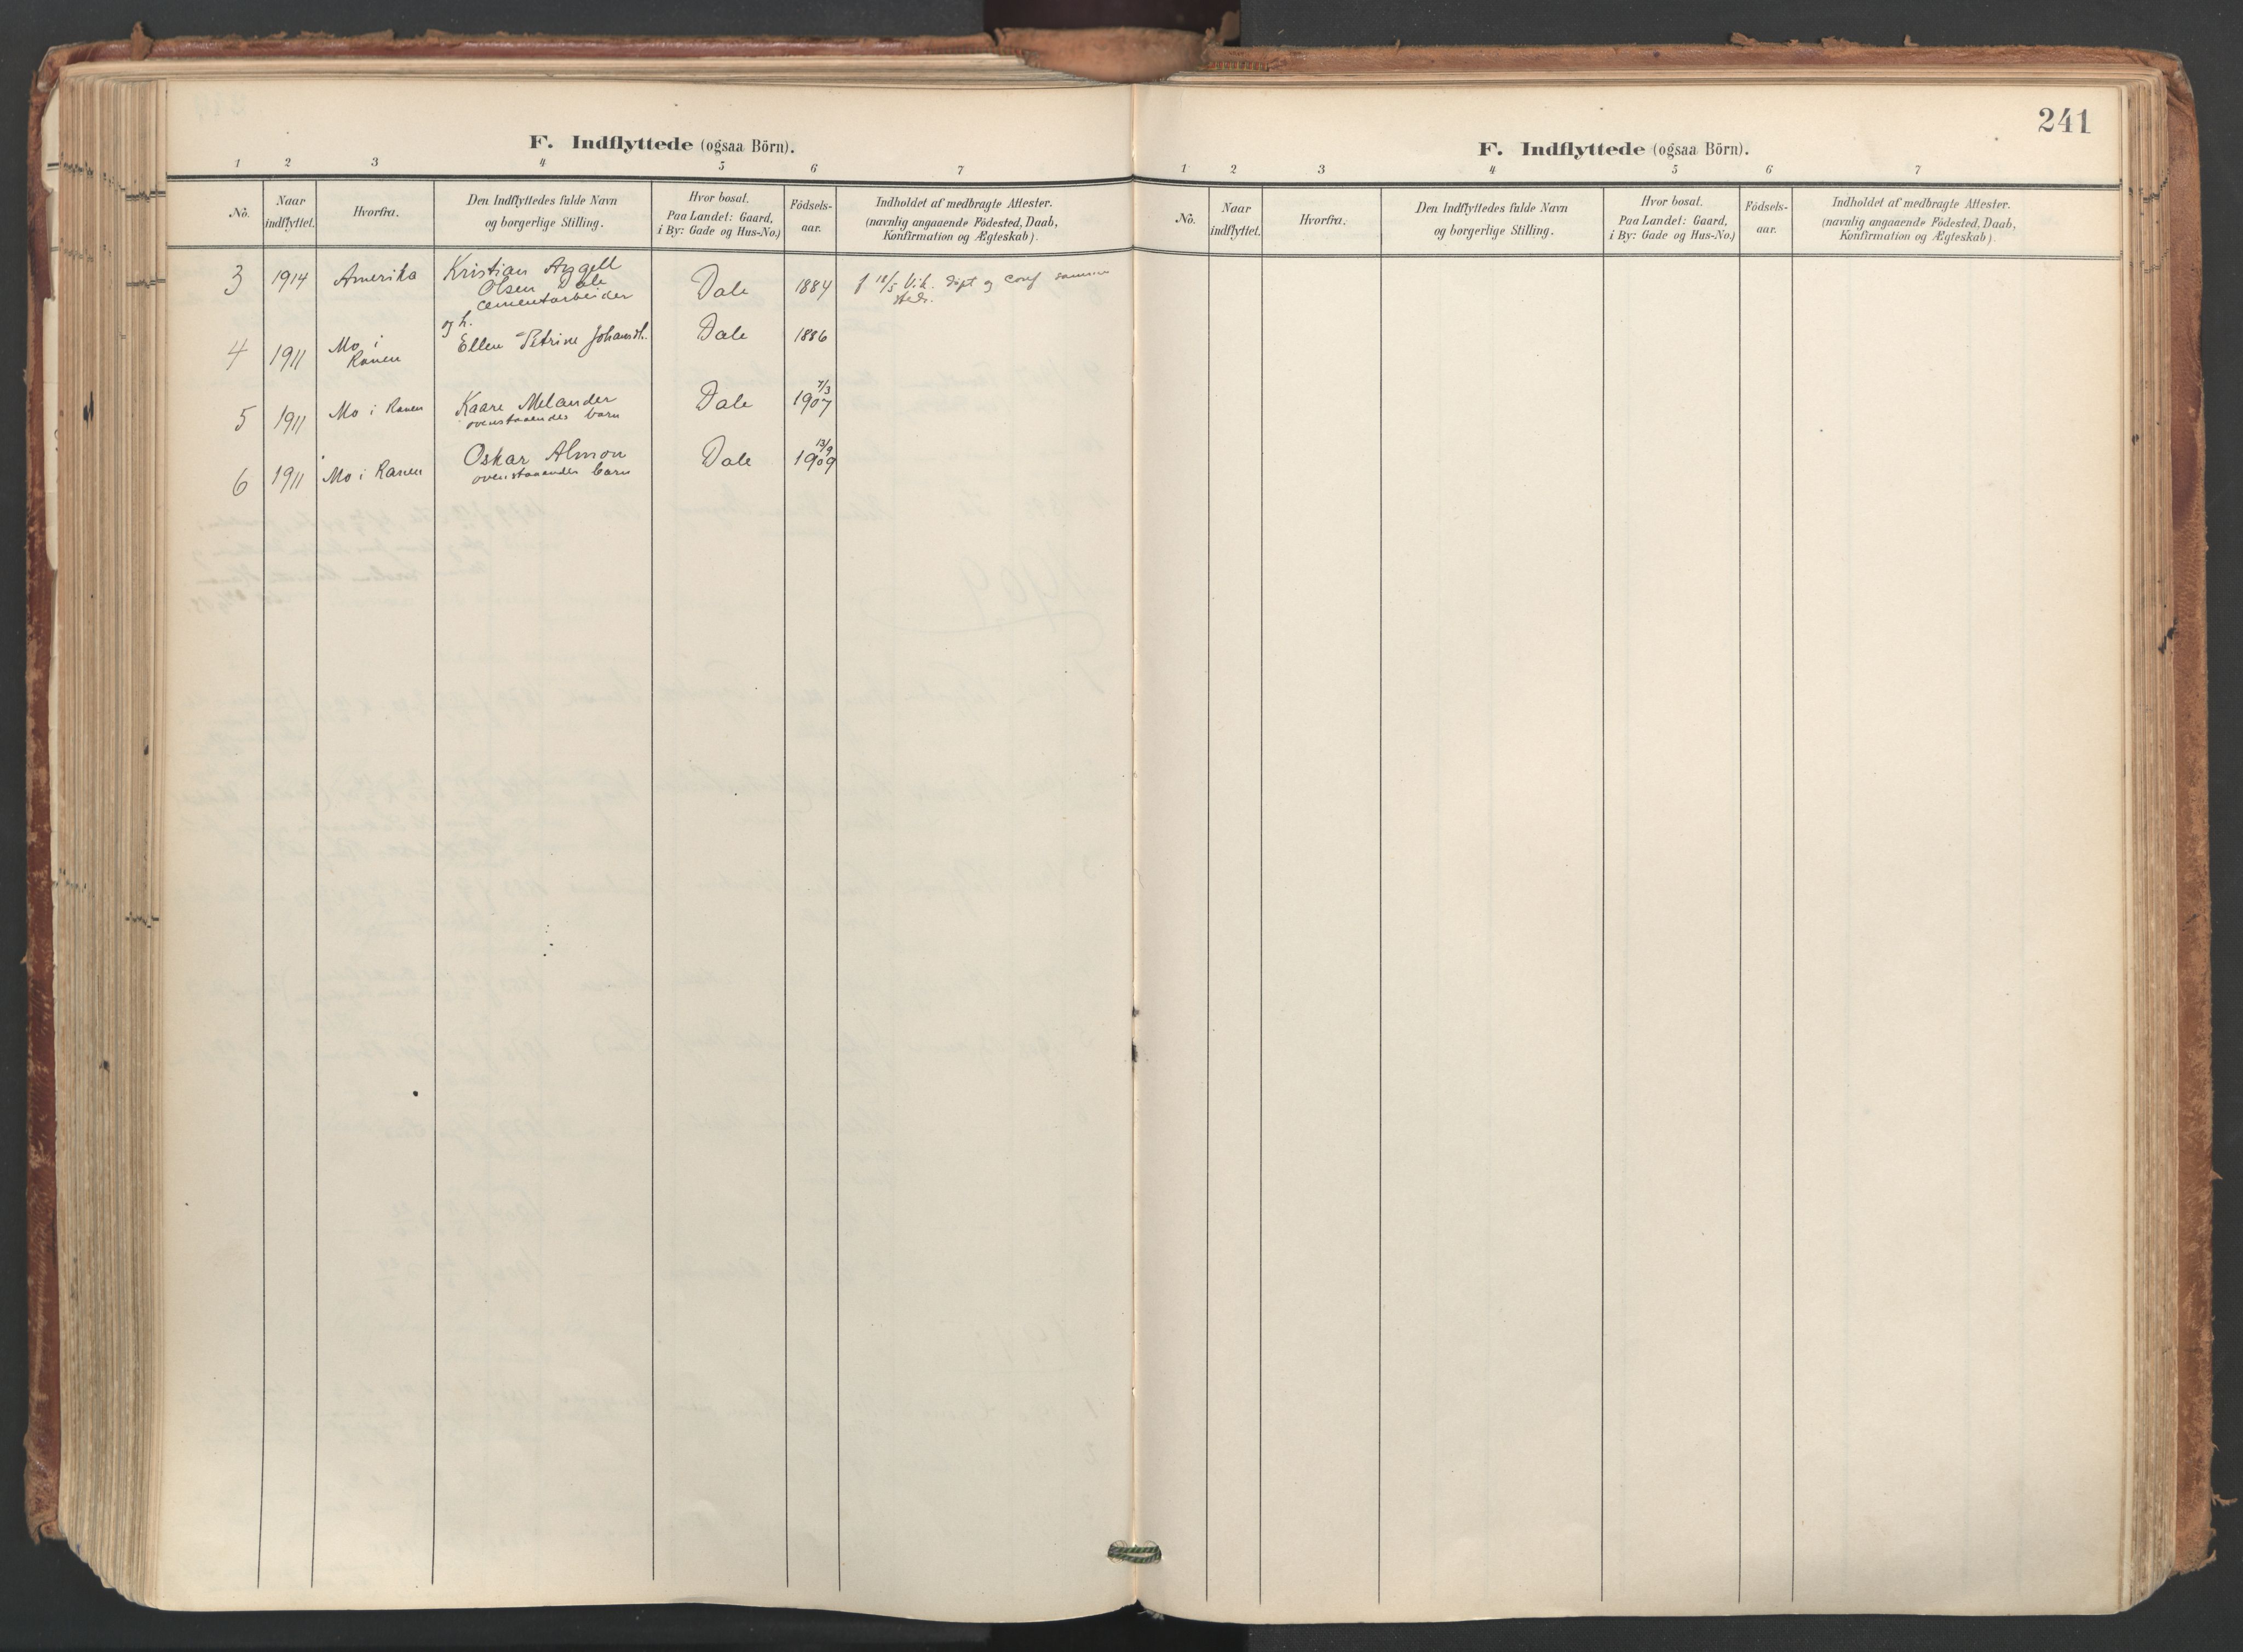 F. Indflyttede (ogsaa Börn).
1 2 3 4 5 6 7
No.
Naar
indflyttet.
Hvorfra.
Den Indflyttedes fulde Navn
og borgerlige Stilling.
Hvor bosat.
Paa Landet: Gaard,
i By: Gade og Hus-No.)
Födsels-
aar.
Indholdet af medbragte Attester.
(navnlig angaaende Födested, Daab,
Konfirmation og Ægteskab).
3 1914 Amerika Kristian Angell
Olsen Dale
cementarbeider
Dale 1884 f 18/5 Vik. döpt og conf samme
steds.
og h.
4 1911 Mo i
Ranen
Ellen Petrine Johansdt.
Dale 1886
5 1911 Mo i Ranen Kaare Melander
ovenstaaendes barn
Dale 7/3
1907
6 1911 Mo i Ranen Oskar Almon
ovenstaaendes barn
Dale 13/9
1909
241
F. Indflyttede (ogsaa Börn).
1 2 3 4 5 6 7
No.
Naar
indflyttet.
Hvorfra.
Den Indflyttedes fulde Navn
og borgerlige Stilling.
Hvor bosat.
Paa Landet: Gaard,
i By: Gade og Hus-No.)
Födsels-
aar.
Indholdet af medbragte Attester.
(navnlig angaaende Födested, Daab,
Konfirmation og Ægteskab).